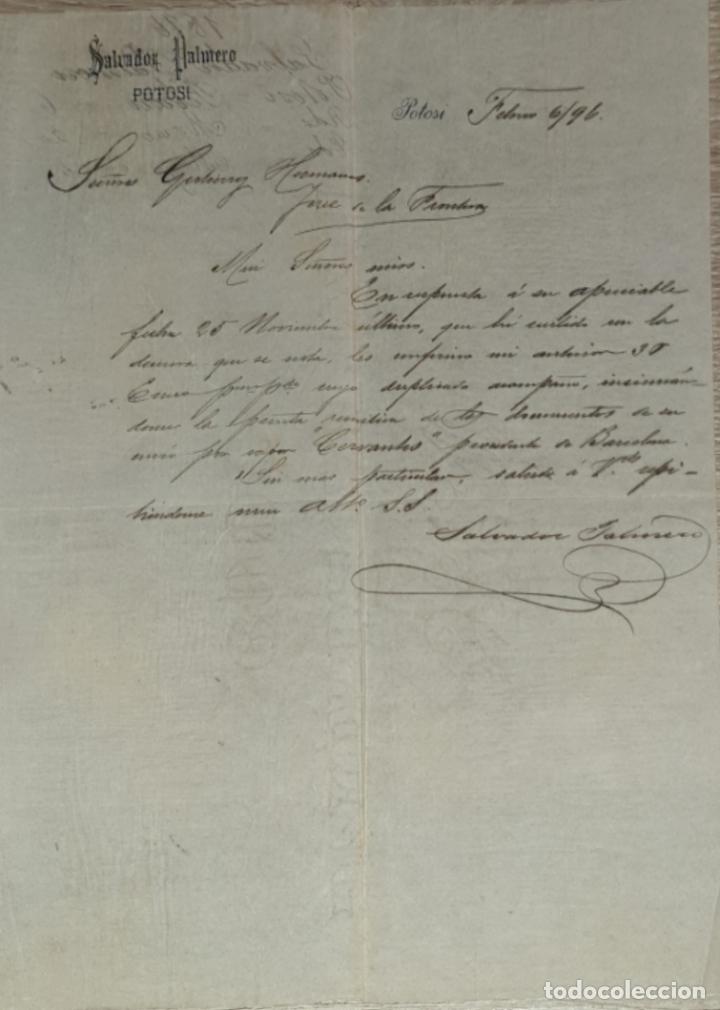 Salvador Palmero
POTOSI
Potosi Febro 6/96.
Señores Gutierrez Hermanos.
Jerez de la Frontera
Mui Señores mios.
En respuesta á su apreciable
fecha 25 Noviembre último, que hé recibido con la
demora que se nota, les confirmo mi anterior 30
Enero ppdo cuyo duplicado acompaño,
la remitiva de los documentos de su
envio por vapor "Cervantes" procedente de Barcelona.
Sin mas particular, saludo á Vds repi-
tiendome Atto S.S.
Salvador Palmero
1896
todocoleccion